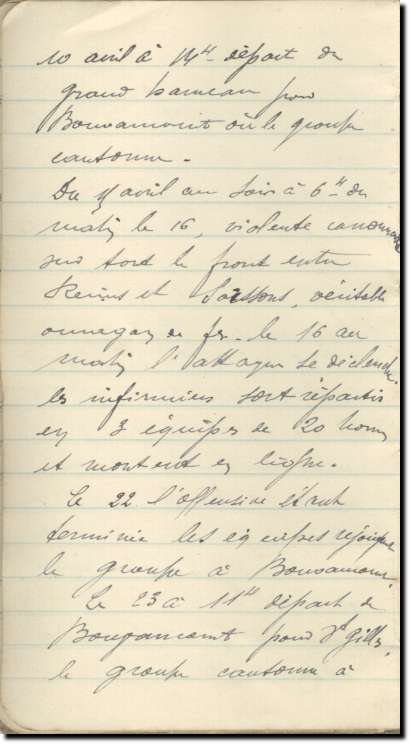 10 avril à 14H départ du
grand hameau pour
Bouvancourt où le groupe
cantonne.
Du 15 avril au soir à 6H du
matin le 16, violente canonnade
sur tout le front entre
Reims et Soissons, véritable
ouragan de fer. le 16 au
matin l'attaque se déclenche
les infirmiers sont répartis
en 3 équipes de 20 hommes
et montent en ligne.
Le 22 l'offensive étant
terminée les équipes rejoignent
le groupe à
Le 23 à 11H départ de
pour St Gilles,
le groupe cantonne à